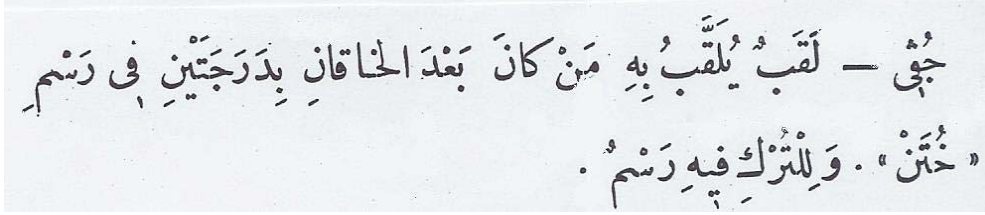 جُفْى — لَقَبٌ يُلَقَّبُ بِهِ مَنْ كانَ بَعْدَ الخاقانِ بِدَرَجَتَيْنِ فى رَسْمِ
« خُتَنْ » . وَلِلْتُرْكِ فيِهِ رَسْمٌ .